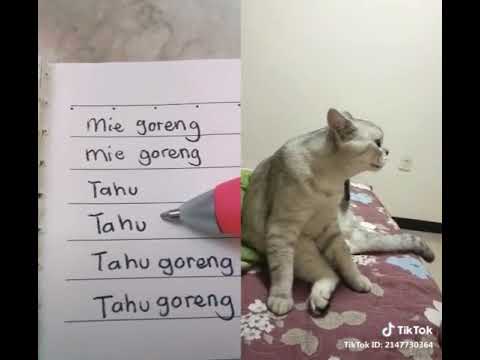 Mie goreng
mie goreng
Tahu
Tahu
Tahu goreng
Tahu goreng
TikTok
TikTok ID: 2147730364